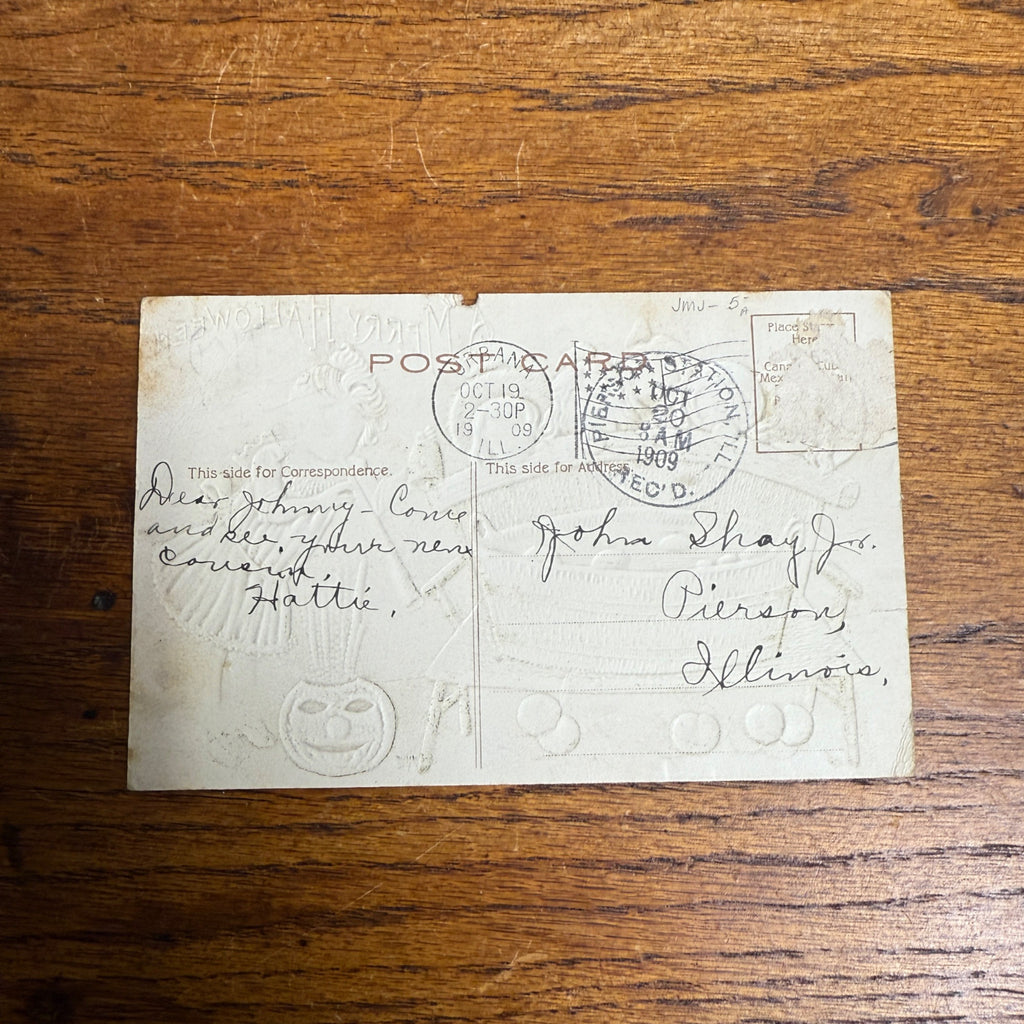 A MERRY HALLOWEEN
JMJ - 5
A
POST CARD
Place
Here
URBANA
OCT 19
2-30P
19 09
ILL.
PIERSON STATION, ILL.
OCT
20
8 AM
1909
REC'D.
This side for Correspondence.
This side for Address.
Dear Johnny - Come
and see your new
Cousin,
Hattie,
John Shay Jr.
Pierson,
Illinois,